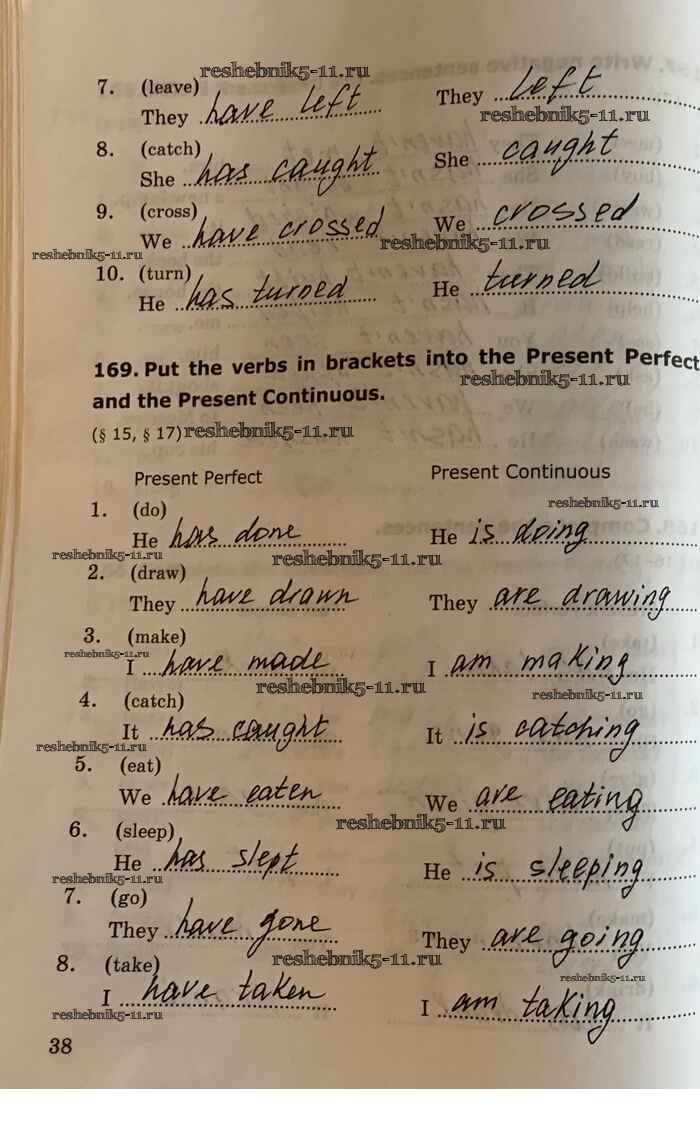 reshebnik5-11.ru
7. (leave)
They have left They left
reshebnik5-11.ru
8. (catch)
She has caught She caught
9. (cross)
We have crossed We crossed
reshebnik5-11.ru reshebnik5-11.ru
10. (turn)
He has turned He turned
169. Put the verbs in brackets into the Present Perfect
reshebnik5-11.ru
and the Present Continuous.
(§ 15, § 17) reshebnik5-11.ru
Present Perfect Present Continuous
1. (do) reshebnik5-11.ru
He has done He is doing
reshebnik5-11.ru reshebnik5-11.ru
2. (draw)
They have drawn They are drawing
reshebnik5-11.ru
3. (make)
reshebnik5-11.ru
I have made I am making
reshebnik5-11.ru reshebnik5-11.ru
4. (catch)
It has caught It is catching
reshebnik5-11.ru
5. (eat)
We have eaten We are eating
reshebnik5-11.ru
6. (sleep)
He has slept He is sleeping
reshebnik5-11.ru
7. (go)
They have gone They are going
reshebnik5-11.ru reshebnik5-11.ru
8. (take) reshebnik5-11.ru
I have taken I am taking
reshebnik5-11.ru
38